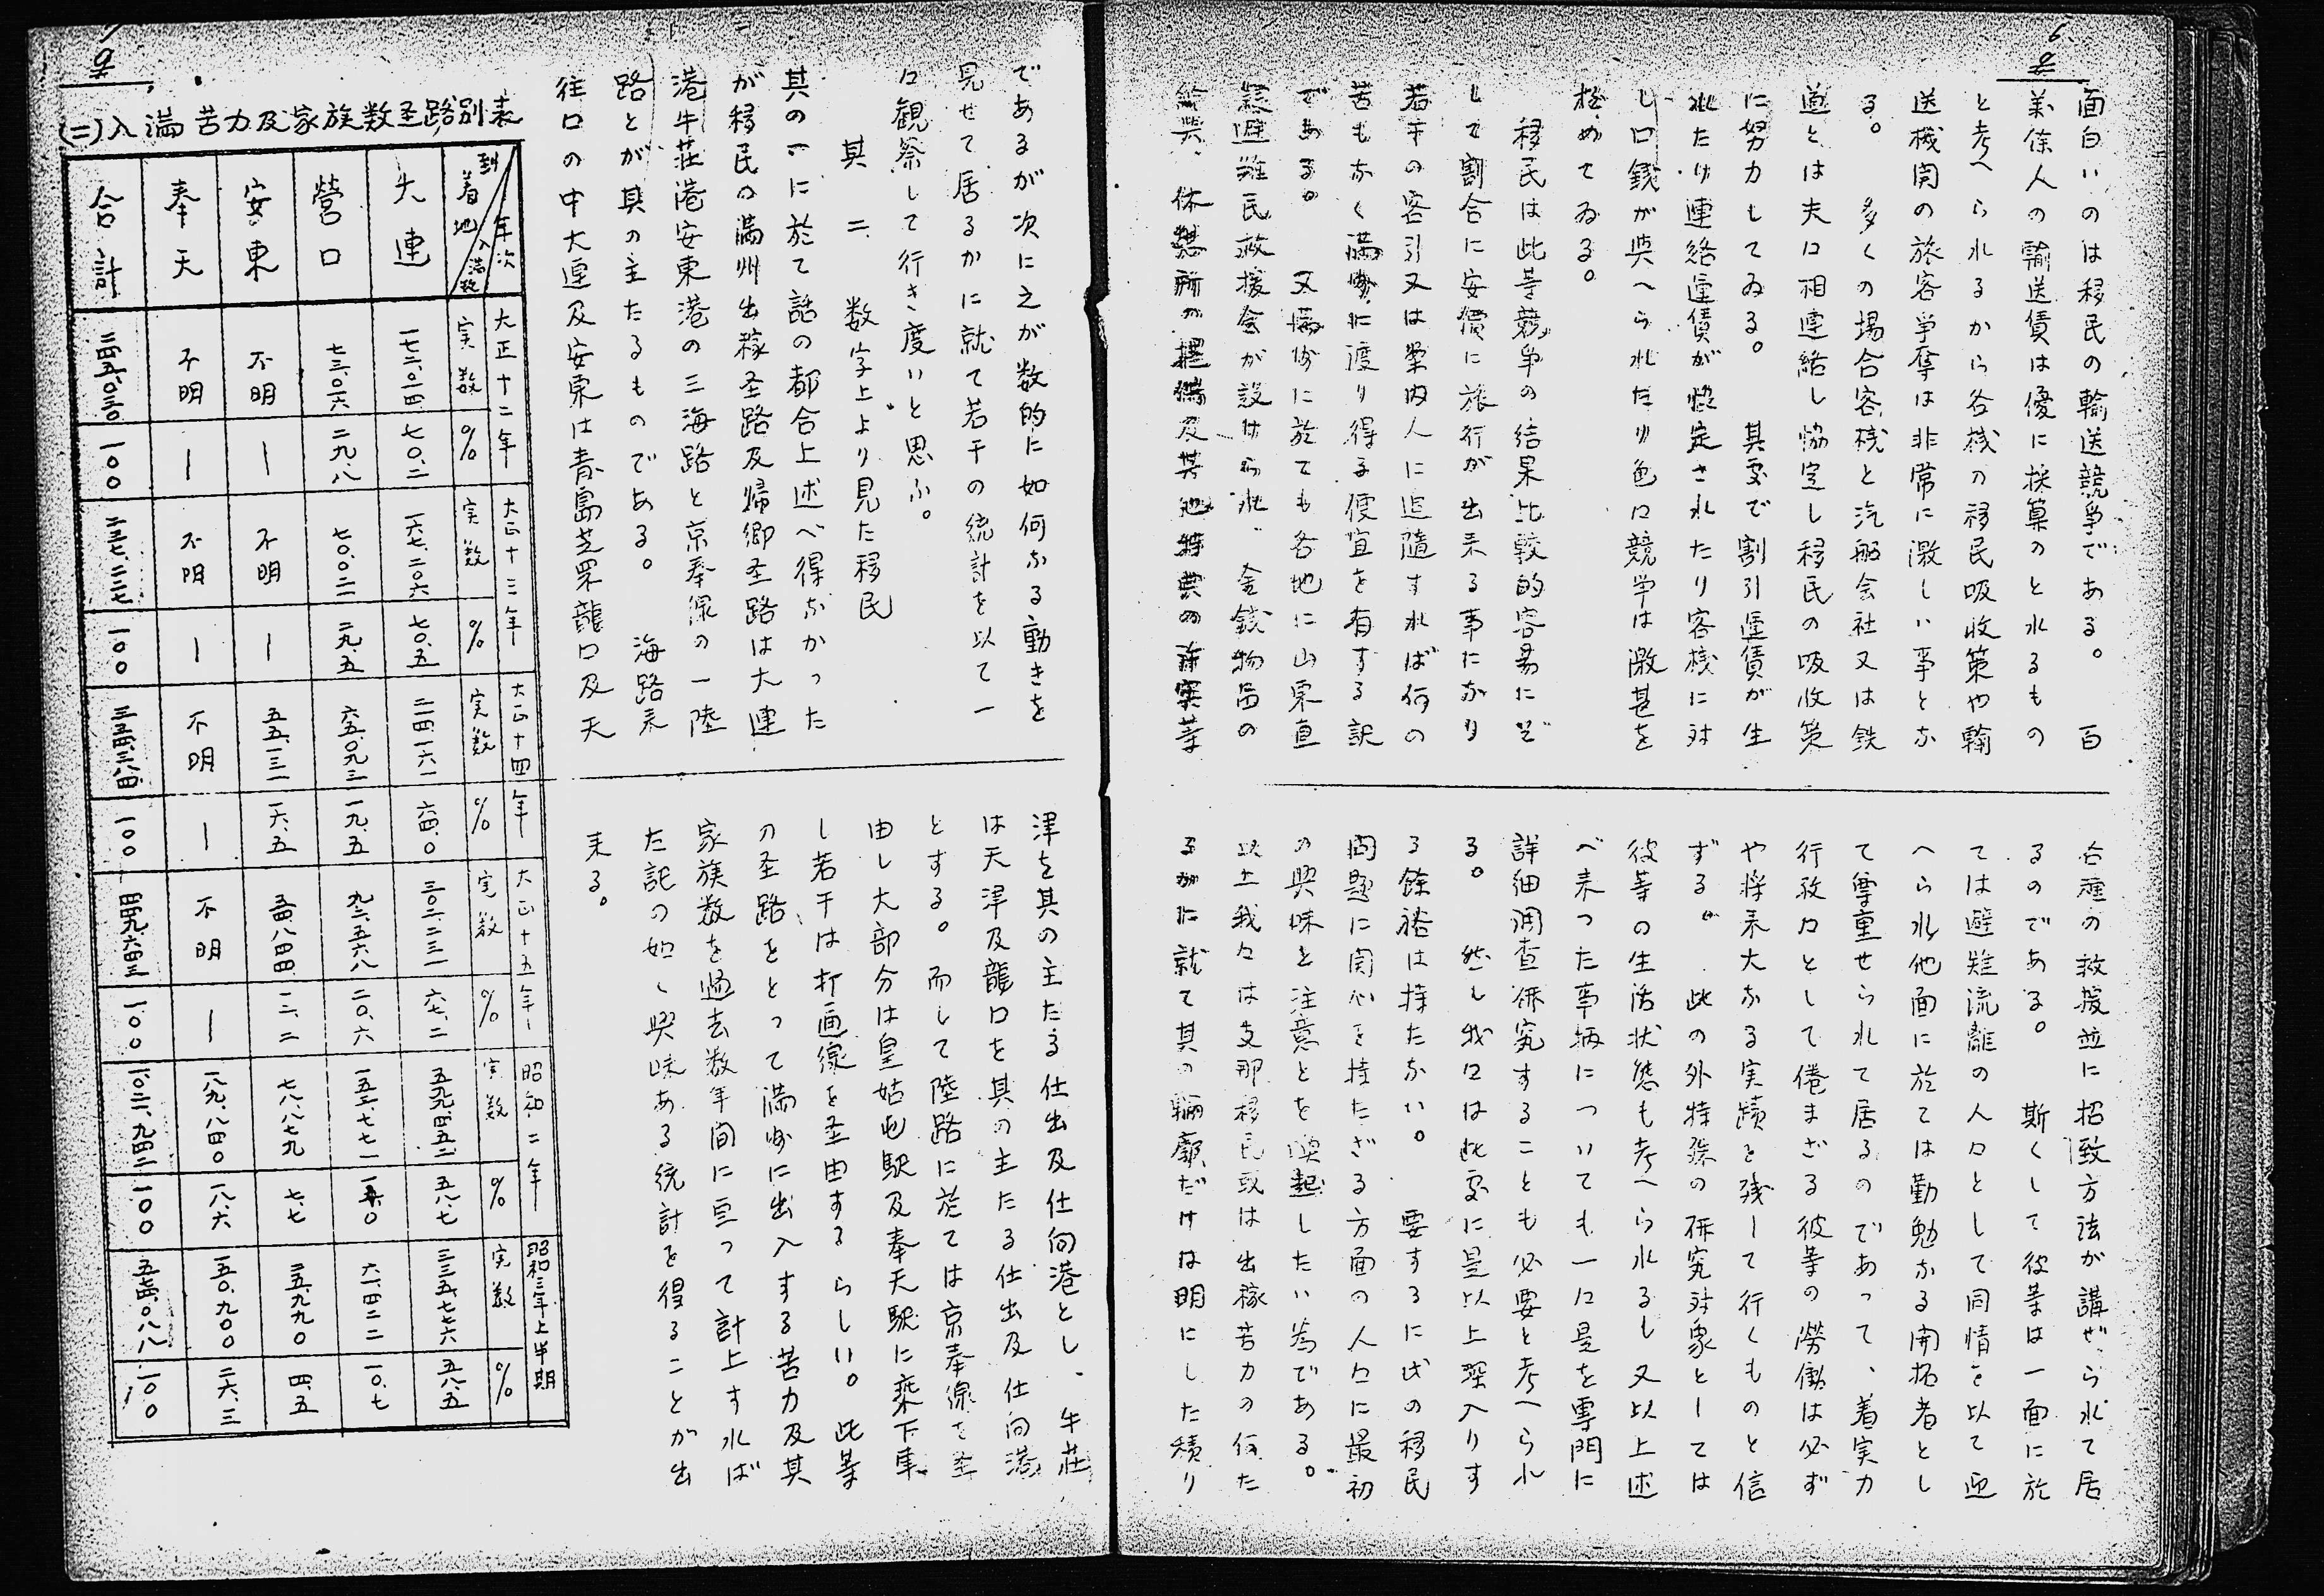 面白いのは移民の輸送競争である。　百
萬余人の輸送賃は優に採算のとれるもの
と考へられるから各桟の移民吸收策や輸
送機関の旅客争奪は非常に激しい事とな
る。　多くの場合客桟と汽船会社又は鉄
道とは夫々相連絡し協定し移民の吸收策
に努力してゐる。　其処で割引運賃が生
れたり連絡運賃が協定されたり客桟に対
し口銭が與へられたり色々競争は激甚を
極めてゐる。
移民は此等競争の結果比較的容易にそ
して割合に安價に旅行が出来る事になり
若干の客引又は案内人に追隨すれば何の
苦もなく満州に渡り得る便宜を有する訳
である。　又満州に於ても各地に山東直
隷避難民救援会が設けられ、金銭物品の
給與、休憩所の準備及其他特典の確実等
各種の救援並に招致方法が講ぜられて居
るのである。　斯くして彼等は一面に於
ては避難流離の人々として同情を以て迎
へられ他面に於ては勤勉なる開拓者とし
て尊重せられて居るのであって、着実力
行致々として倦まざる彼等の勞働は必ず
や将来大なる実蹟を残して行くものと信
ずる。　此の外特殊の研究対象としては
彼等の生活状態も考へられるし又以上述
べ来つた事柄についても一々是を専門に
詳細調査研究することも必要と考へられ
る。　然し我々は此処に是以上深入りす
る餘裕は持たない。　要するに此の移民
問題に関心を持たざる方面の人々に最初
の興味と注意とを喚起したい為である。
以上我々は支那移民或は出稼苦力の何た
るかに就て其の輪廓だけは明にした積り
であるが次に之が数的に如何なる動きを
見せて居るかに就て若干の統計を以て一
々観察して行き度いと思ふ。
其二、数字上より見た移民
其の一に於て話の都合上述べ得なかった
が移民の満州出稼圣路及帰郷圣路は大連
港牛荘港安東港の三海路と京奉線の一陸
路とが其の主たるものである。　海路来
往口の中大連及安東は青島芝罘龍口及天
津を其の主たる仕出及仕向港とし、牛荘
は天津及龍口を其の主たる仕出及仕向港
とする。而して陸路に於ては京奉線を圣
由し大部分は皇姑屯駅及奉天駅に乗下車
し若干は打通線を圣由するらしい。此等
の圣路をとって満州に出入する苦力及其
家族数を過去数年間に亘って計上すれば
左記の如く興味ある統計を得ることが出
来る。
(二)入満苦力及家族数圣路別表
年次　入満数　到着地
大連　營口　安東　奉天　合計
大正十二年
実数　一七二、〇一四　七三、〇一六　不明　不明　二四五、〇三〇
%　七〇.二　二九.八　｜　｜　一〇〇
大正十三年
実数　一六七、二〇六　七〇、〇二一　不明　不明　二三七、二二七
%　七〇.五　二九.五　｜　｜　一〇〇
大正十四年
実数　二一四、一六一　六五、〇九二　五五、一三一　不明　三三四、三八四
%　六四.〇　一九.五　一六.五　｜　一〇〇
大正十五年
実数　三〇二、二三一　九二、五六八　五四、八四四　不明　四四九、六四三
%　六七.二　二〇.六　一二.二　｜　一〇〇
昭和二年
実数　五九九、四五二　一五二、七七一　七八、八七九　一八九、八四〇　一、〇二〇、九四二
%　五八.七　一五.〇　七.七　一八.六　一〇〇
昭和三年上半期
実数　三三五、七七六　六一、四二二　二五、九九〇　一五〇、九〇〇　五七四、〇八八
%　五八.五　一〇.七　四.五　二六.三　一〇〇